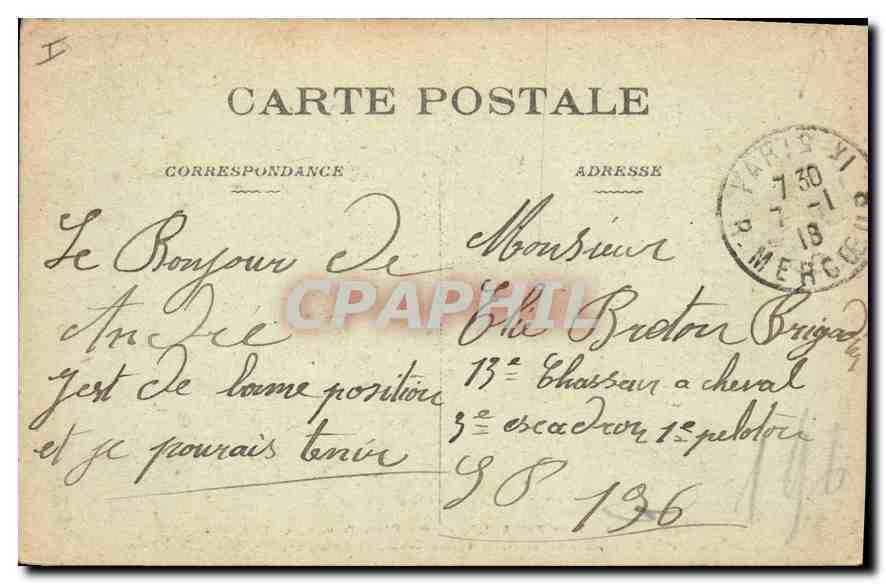 I
CARTE POSTALE
CORRESPONDANCE
ADRESSE
PARIS XI
7 30
7 -1
18
R. MERCŒUR
Le Bonjour de
André
Jest de bone position
et je pourais tenir
Monsieur
Elie Breton Brigadier
13e Chasseur a cheval
3e escadron 1e peloton
S P 196
196
CPAPHIL